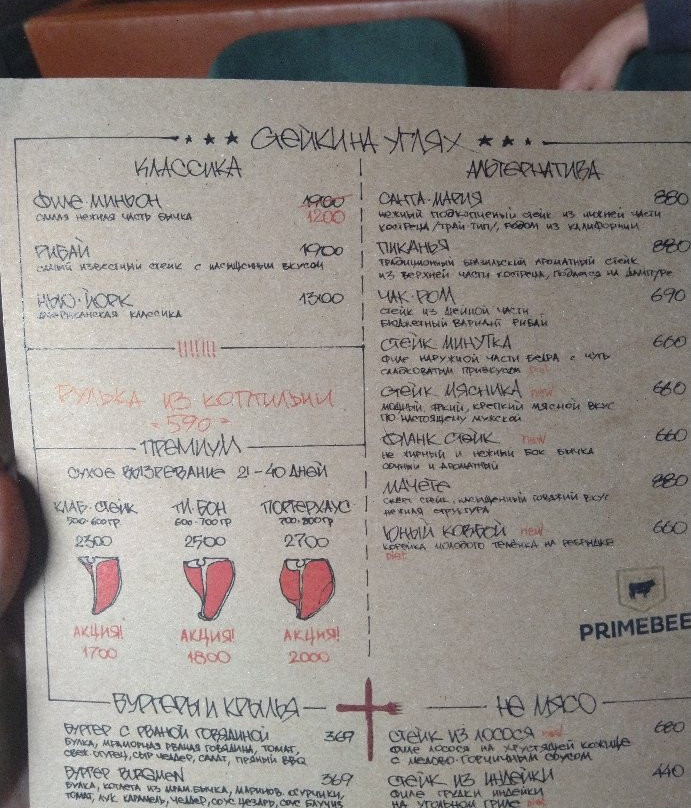 СТЕЙКИ НА УГЛЯХ
КЛАССИКА
ФИЛЕ МИНЬОН 1900
САМАЯ НЕЖНАЯ ЧАСТЬ БЫЧКА 1200
РИБАЙ 1900
САМЫЙ ИЗВЕСТНЫЙ СТЕЙК С НАСЫЩЕННЫМ ВКУСОМ
НЬЮ-ЙОРК 1300
АМЕРИКАНСКАЯ КЛАССИКА
РУЛЬКА ИЗ КОПТИЛЬНИ
590
ПРЕМИУМ
СУХОЕ ВЫЗРЕВАНИЕ 21-40 ДНЕЙ
КЛАБ-СТЕЙК ТИ-БОН ПОРТЕРХАУС
500-600ГР 600-700ГР 700-800ГР
2300 2500 2700
АКЦИЯ! АКЦИЯ! АКЦИЯ!
1700 1800 2000
АЛЬТЕРНАТИВА
САНТА-МАРИЯ 880
НЕЖНЫЙ ПОДКОПЧЕНЫЙ СТЕЙК ИЗ НИЖНЕЙ ЧАСТИ
КОСТРЕЦА /ТРАЙ-ТИП/, РОДОМ ИЗ КАЛИФОРНИИ
ПИКАНЬЯ 880
ТРАДИЦИОННЫЙ БРАЗИЛЬСКИЙ АРОМАТНЫЙ СТЕЙК
ИЗ ВЕРХНЕЙ ЧАСТИ КОСТРЕЦА, ПОДАЕТСЯ НА ШАМПУРЕ
ЧАК-РОЛ 690
СТЕЙК ИЗ ШЕЙНОЙ ЧАСТИ
БЮДЖЕТНЫЙ ВАРИАНТ РИБАЙ
СТЕЙК МИНУТКА 660
ФИЛЕ НАРУЖНОЙ ЧАСТИ БЕДРА С ЧУТЬ
СЛАДКОВАТЫМ ПРИВКУСОМ diet
СТЕЙК МЯСНИКА new 660
МОЩНЫЙ, ЯРКИЙ, КРЕПКИЙ МЯСНОЙ ВКУС
ПО-НАСТОЯЩЕМУ МУЖСКОЙ
ФЛАНК СТЕЙК new 660
НЕ ЖИРНЫЙ И НЕЖНЫЙ БОК БЫЧКА
СОЧНЫЙ И АРОМАТНЫЙ
МАЧЕТЕ 880
СТЕЙК, НАСЫЩЕННЫЙ ГОВЯЖИЙ ВКУС
НЕЖНАЯ СТРУКТУРА
ЮНЫЙ КОВБОЙ new 660
КОРЕЙКА МОЛОДОГО ТЕЛЁНКА НА РЕБРЫШКЕ
diet
PRIMEBEE
БУРГЕРЫ И КРЫЛЬЯ
БУРГЕР С РВАНОЙ ГОВЯДИНОЙ 369
БУЛКА, МРАМОРНАЯ РВАНАЯ ГОВЯДИНА, ТОМАТ,
СВЕЖ. ОГУРЕЦ, СЫР ЧЕДДЕР, САЛАТ, ПРЯНЫЙ BBQ
БУРГЕР BURGMEN 369
БУЛКА, КОТЛЕТА ИЗ МРАМ.БЫЧКА, МАРИНОВ. ОГУРЧИКИ,
ТОМАТ, ЛУК КАРАМЕЛЬ, ЧЕДДЕР, СОУС ЦЕЗАРЬ, СОУС
НЕ МЯСО
СТЕЙК ИЗ ЛОСОСЯ 680
ФИЛЕ ЛОСОСЯ НА ХРУСТЯЩЕЙ КОЖИЦЕ
С МЕДОВО-ГОРЧИЧНЫМ СОУСОМ
СТЕЙК ИЗ ИНДЕЙКИ 440
ФИЛЕ ГРУДКИ ИНДЕЙКИ
НА УГОЛЬНОМ ГРИЛЕ diet